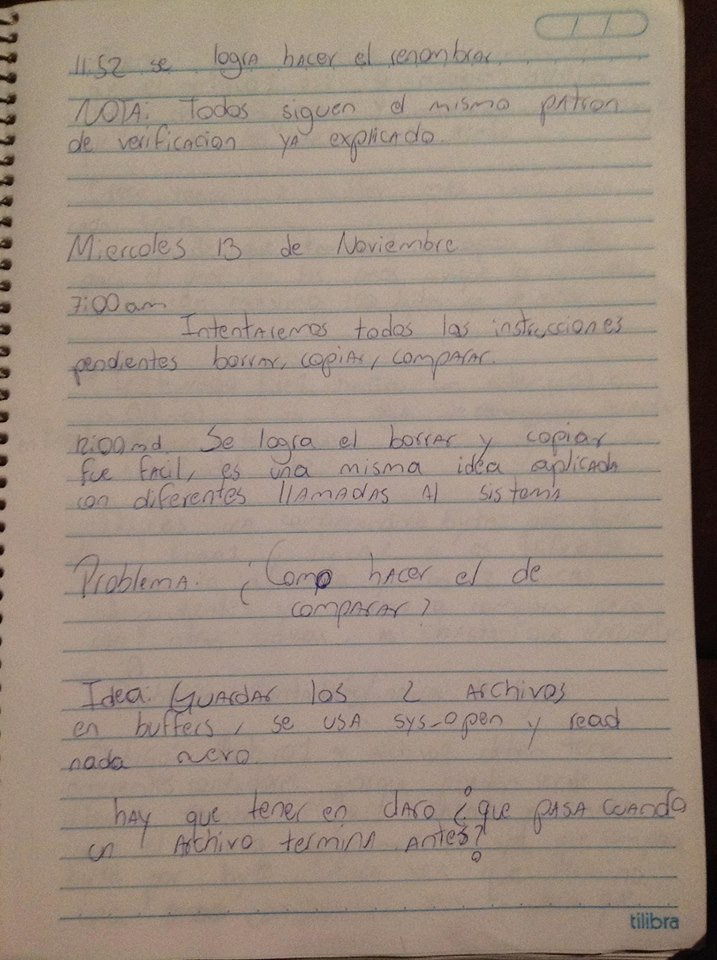 11:52 se logra hacer el renombrar.
NOTA: Todos siguen el mismo patron
de verificacion ya explicado.
Miercoles 13 de Noviembre
7:00am
Intentaremos todos las instrucciones
pendientes borrar, copiar, comparar.
12:00md. Se logra el borrar y copiar
fue facil, es una misma idea aplicada
con diferentes llamadas al sistema
Problema: ¿Como hacer el de
comparar?
Idea: Guardar los 2 archivos
en buffers, se usa sys_open y read
nada nuevo.
hay que tener en claro ¿que pasa cuando
un archivo termina antes?
tilibra